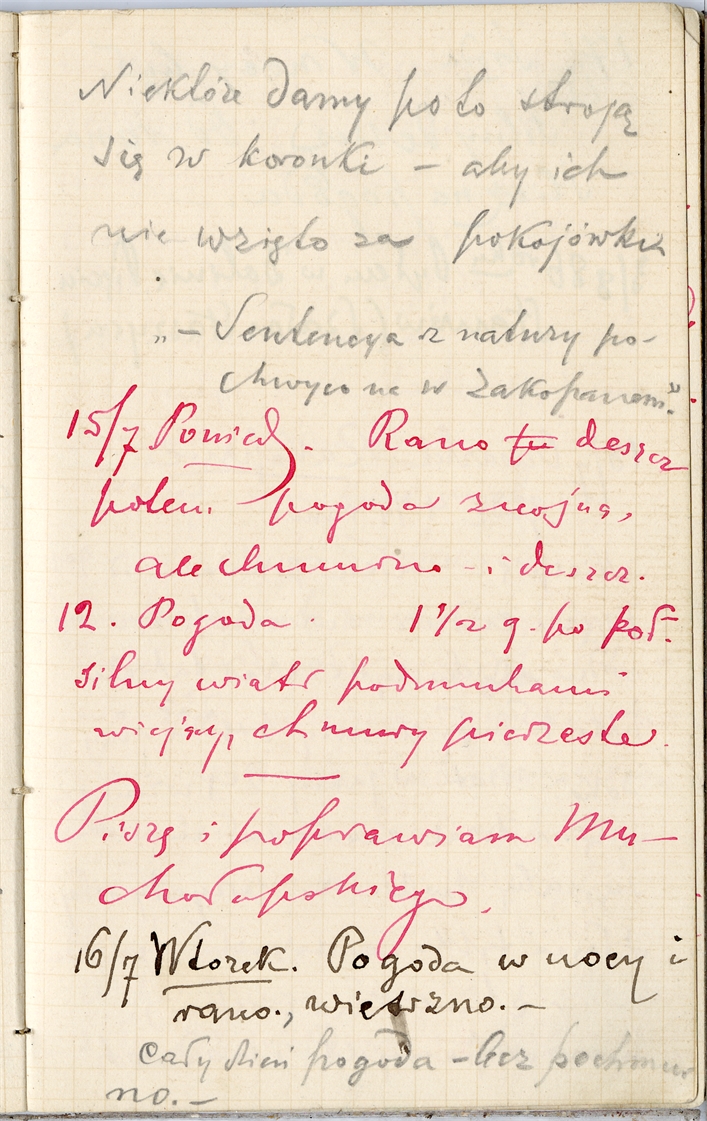 Niektóre damy po to stroją
się w koronki – aby ich
nie wzięto za pokojówki
„ – Sentencya z natury po-
chwycona w Zakopanem".
15/7 Poniedz. Rano deszcz
potem pogoda znojna,
ale chmurno – i deszcz.
12. Pogoda. 1 1/2 g. po poł.
silny wiatr podmuchami
wiejący, chmury pierzaste.
Piszę i poprawiam Mu-
chołapskiego.
16/7 Wtorek. Pogoda w nocy i
rano., wietrzno. –
Cały dzień pogoda – lecz pochmur
no. –